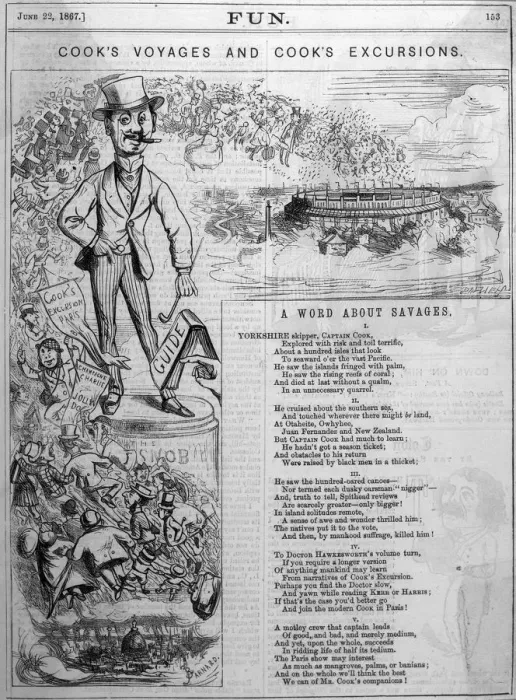 JUNE 22, 1867.]
FUN.
153
COOK'S VOYAGES AND COOK'S EXCURSIONS.
COOK'S
EXCURSION
PARIS
CHARLIE
JOLLY
GUIDE
SNOB
BARNARD.
A WORD ABOUT SAVAGES.
I.
YORKSHIRE skipper, CAPTAIN COOK,
Explored with risk and toil terrific,
About a hundred isles that look
To seaward o'er the vast Pacific.
He saw the islands fringed with palm,
He saw the rising reefs of coral;
And died at last without a qualm,
In an unnecessary quarrel.
II.
He cruised about the southern sea,
And touched wherever there might be land,
At Otaheite, Owhyhee,
Juan Fernandez and New Zealand.
But CAPTAIN COOK had much to learn;
He hadn't got a season ticket;
And obstacles to his return
Were raised by black men in a thicket;
III.
He saw the hundred-oared canoes—
Nor termed each dusky oarsman "nigger"—
And, truth to tell, Spithead reviews
Are scarcely greater—only bigger!
In island solitudes remote,
A sense of awe and wonder thrilled him;
The natives put it to the vote,
And then, by manhood suffrage, killed him!
IV.
To DOCTOR HAWKESWORTH'S volume turn,
If you require a longer version
Of anything mankind may learn
From narratives of COOK'S Excursion.
Perhaps you find the Doctor slow,
And yawn while reading KERR or HARRIS;
If that's the case you'd better go
And join the modern COOK in Paris!
V.
A motley crew that captain leads
Of good, and bad, and merely medium,
And yet, upon the whole, succeeds
In ridding life of half its tedium.
The Paris show may interest
As much as mangroves, palms, or banians;
And on the whole we'll think the best
We can of MR. COOK'S companions!